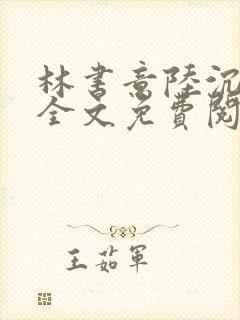 林书意陸沉
全文免費閱
王茹軍